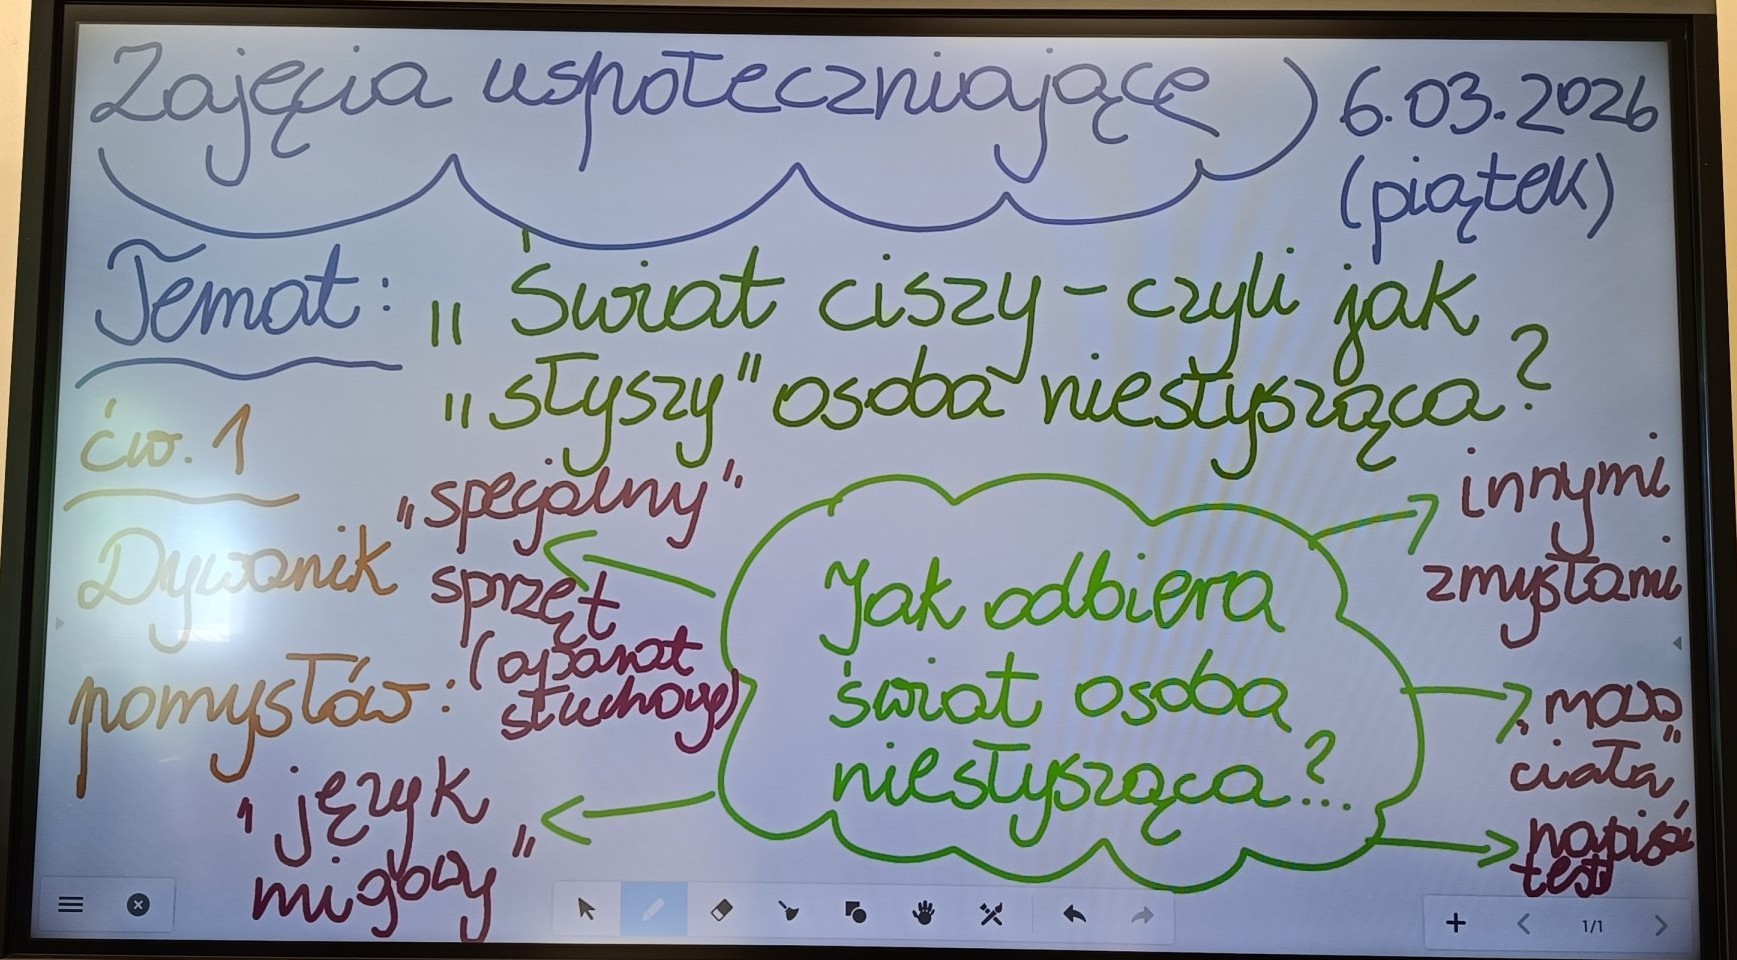 Zajęcia uspołeczniające
6.03.2026
(piątek)
Temat: „Świat ciszy – czyli jak
„słyszy" osoba niesłysząca?
ćw. 1
Dywanik
pomysłów:
„specjalny"
sprzęt
(aparat
słuchowy)
język
migowy"
Jak odbiera
świat osoba
niesłysząca?...
innymi
zmysłami
ciała"
1/1